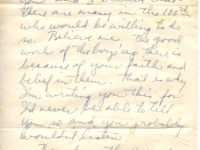 there are many in the 100th
who would be willing to do
so. Believe me, the good
work of the boys up there is
because of your faith and
belief in them. that is why
I'm writing you this for
I'd never be able to tell
you so and you probably
wouldn't listen.